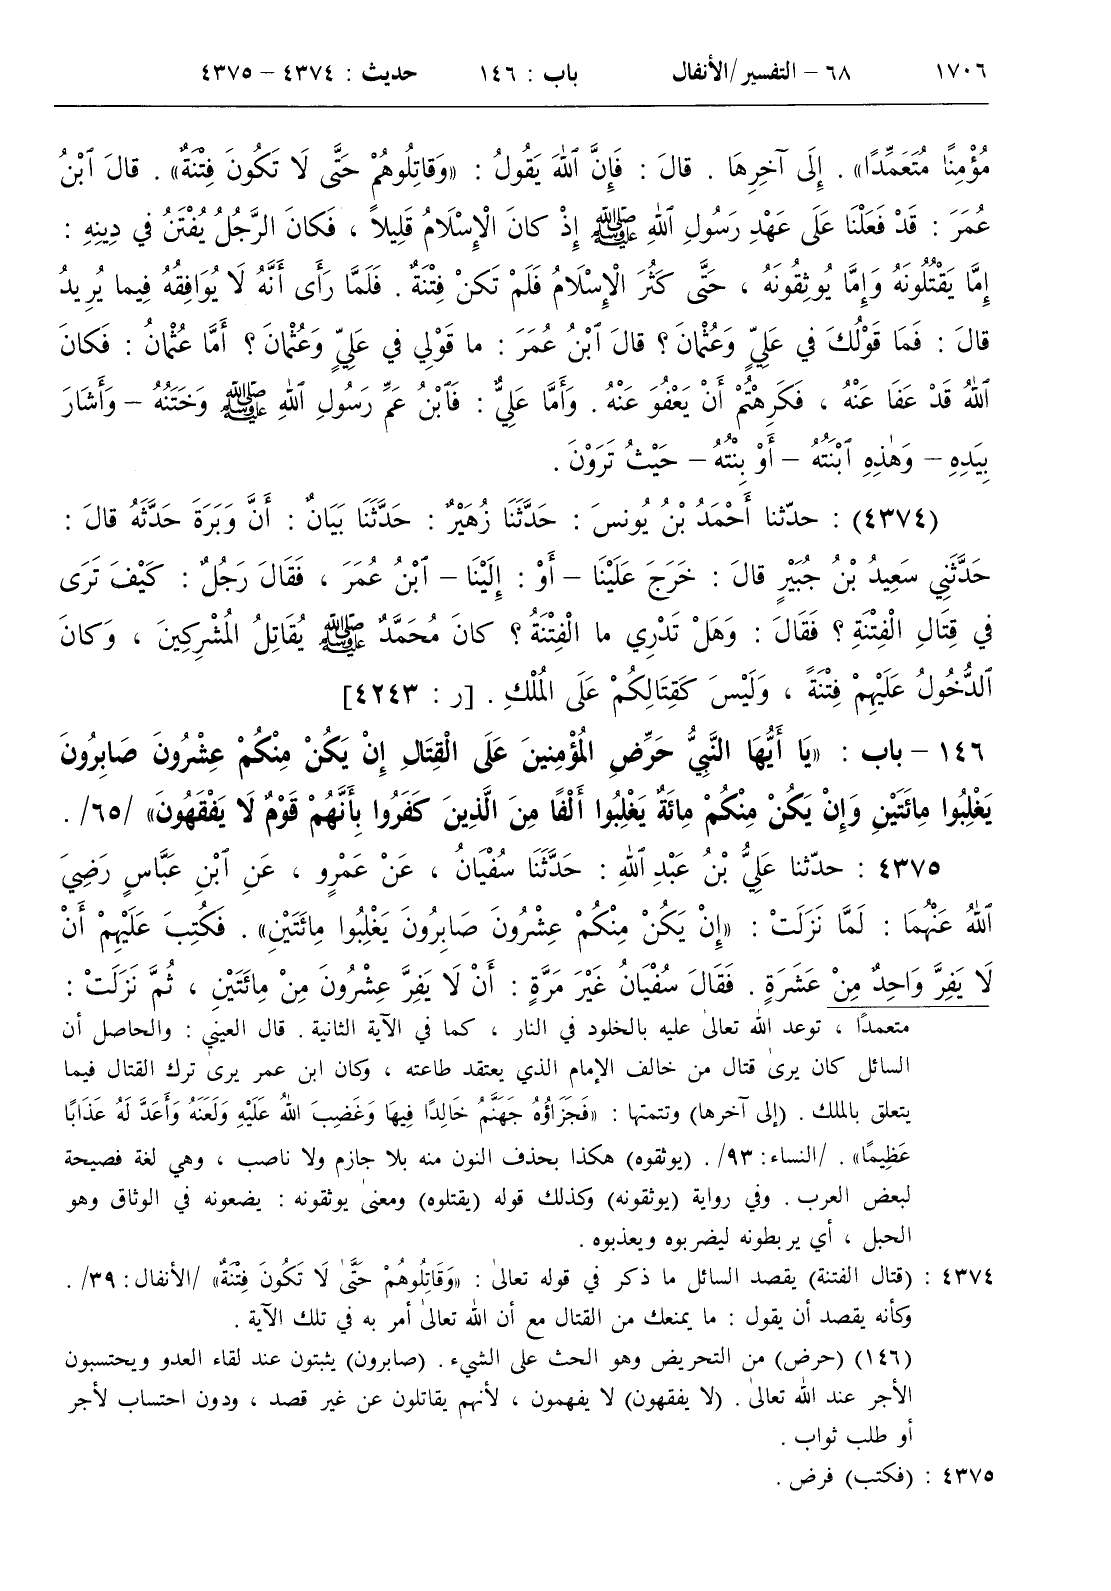 ١٧٠٦ ٦٨ – التفسير/الأنفال باب : ١٤٦ حديث : ٤٣٧٤ – ٤٣٧٥
مُؤْمِنًا مُتَعَمِّدًا» . إِلَى آخِرِهَا . قالَ : فَإِنَّ ٱللهَ يَقُولُ : «وَقاتِلُوهُمْ حَتَّى لَا تَكُونَ فِتْنَةٌ» . قالَ ٱبْنُ
عُمَرَ : قَدْ فَعَلْنَا عَلَى عَهْدِ رَسُولِ ٱللهِ ﷺ إِذْ كانَ الْإِسْلَامُ قَلِيلاً ، فَكانَ الرَّجُلُ يُفْتَنُ في دِينِهِ :
إِمَّا يَقْتُلُونَهُ وَإِمَّا يُوثِقُونَهُ ، حَتَّى كَثُرَ الْإِسْلَامُ فَلَمْ تَكنْ فِتْنَةٌ . فَلَمَّا رَأَى أَنَّهُ لَا يُوَافِقُهُ فِيما يُرِيدُ
قالَ : فَمَا قَوْلُكَ في عَلِيٍّ وَعُثْمانَ ؟ قالَ ٱبْنُ عُمَرَ : ما قَوْلِي في عَلِيٍّ وَعُثْمانَ ؟ أَمَّا عُثْمانُ : فَكانَ
ٱللهُ قَدْ عَفَا عَنْهُ ، فَكَرِهْتُمْ أَنْ يَعْفُوَ عَنْهُ . وَأَمَّا عَلِيٌّ : فَٱبْنُ عَمِّ رَسُولِ ٱللهِ ﷺ وَخَتَنُهُ – وَأَشَارَ
بِيَدِهِ – وَهٰذِهِ ٱبْنَتُهُ – أَوْ بِنْتُهُ – حَيْثُ تَرَوْنَ .
(٤٣٧٤) : حدّثنا أَحْمَدُ بْنُ يُونسَ : حَدَّثَنَا زُهَيْرٌ : حَدَّثَنَا بَيَانٌ : أَنَّ وَبَرَةَ حَدَّثَهُ قالَ :
حَدَّثَنِي سَعِيدُ بْنُ جُبَيْرٍ قالَ : خَرَجَ عَلَيْنَا – أَوْ : إِلَيْنَا – ٱبْنُ عُمَرَ ، فَقَالَ رَجُلٌ : كَيْفَ تَرَى
في قِتَالِ الْفِتْنَةِ ؟ فَقَالَ : وَهَلْ تَدْرِي ما الْفِتْنَةُ ؟ كانَ مُحَمَّدٌ ﷺ يُقَاتِلُ المُشْرِكِينَ ، وَكانَ
ٱلدُّخُولُ عَلَيْهِمْ فِتْنَةً ، وَلَيْسَ كَقِتَالِكُمْ عَلَى المُلْكِ . [ر : ٤٢٤٣]
١٤٦ – باب : «يَا أَيُّهَا النَّبِيُّ حَرِّضِ المُؤْمِنِينَ عَلَى الْقِتَالِ إِنْ يَكُنْ مِنْكُمْ عِشْرُونَ صَابِرُونَ
يَغْلِبُوا مِائَتَيْنِ وَإِنْ يَكُنْ مِنْكُمْ مِائَةٌ يَغْلِبُوا أَلْفًا مِنَ الَّذِينَ كَفَرُوا بِأَنَّهُمْ قَوْمٌ لَا يَفْقَهُونَ» /٦٥/ .
٤٣٧٥ : حدّثنا عَلِيُّ بْنُ عَبْدِ ٱللهِ : حَدَّثَنَا سُفْيَانُ ، عَنْ عَمْرٍو ، عَنِ ٱبْنِ عَبَّاسٍ رَضِيَ
ٱللهُ عَنْهُمَا : لَمَّا نَزَلَتْ : «إِنْ يَكُنْ مِنْكُمْ عِشْرُونَ صَابِرُونَ يَغْلِبُوا مِائَتَيْنِ» . فَكُتِبَ عَلَيْهِمْ أَنْ
لَا يَفِرَّ وَاحِدٌ مِنْ عَشَرَةٍ . فَقَالَ سُفْيَانُ غَيْرَ مَرَّةٍ : أَنْ لَا يَفِرَّ عِشْرُونَ مِنْ مِائَتَيْنِ ، ثُمَّ نَزَلَتْ :
متعمدًا ، توعد الله تعالىٰ عليه بالخلود في النار ، كما في الآية الثانية . قال العينيٰ : والحاصل أن
السائل كان يرىٰ قتال من خالف الإمام الذي يعتقد طاعته ، وكان ابن عمر يرى ترك القتال فيما
يتعلق بالملك . (إلى آخرها) وتتمتها : «فَجَزَاؤُهُ جَهَنَّمُ خَالِدًا فِيهَا وَغَضِبَ اللهُ عَلَيْهِ وَلَعَنَهُ وَأَعَدَّ لَهُ عَذَابًا
عَظِيمًا» . /النساء: ٩٣/ . (يوثقوه) هكذا بحذف النون منه بلا جازم ولا ناصب ، وهي لغة فصيحة
لبعض العرب . وفي رواية (يوثقونه) وكذلك قوله (يقتلوه) ومعنىٰ يوثقونه : يضعونه في الوثاق وهو
الحبل ، أي يربطونه ليضربوه ويعذبوه .
٤٣٧٤ : (قتال الفتنة) يقصد السائل ما ذكر في قوله تعالىٰ : «وَقَاتِلُوهُمْ حَتَّىٰ لَا تَكُونَ فِتْنَةٌ» /الأنفال: ٣٩/ .
وكأنه يقصد أن يقول : ما يمنعك من القتال مع أن الله تعالىٰ أمر به في تلك الآية .
(١٤٦) (حرض) من التحريض وهو الحث على الشيء . (صابرون) يثبتون عند لقاء العدو ويحتسبون
الأجر عند الله تعالىٰ . (لا يفقهون) لا يفهمون ، لأنهم يقاتلون عن غير قصد ، ودون احتساب لأجر
أو طلب ثواب .
٤٣٧٥ : (فكتب) فرض .